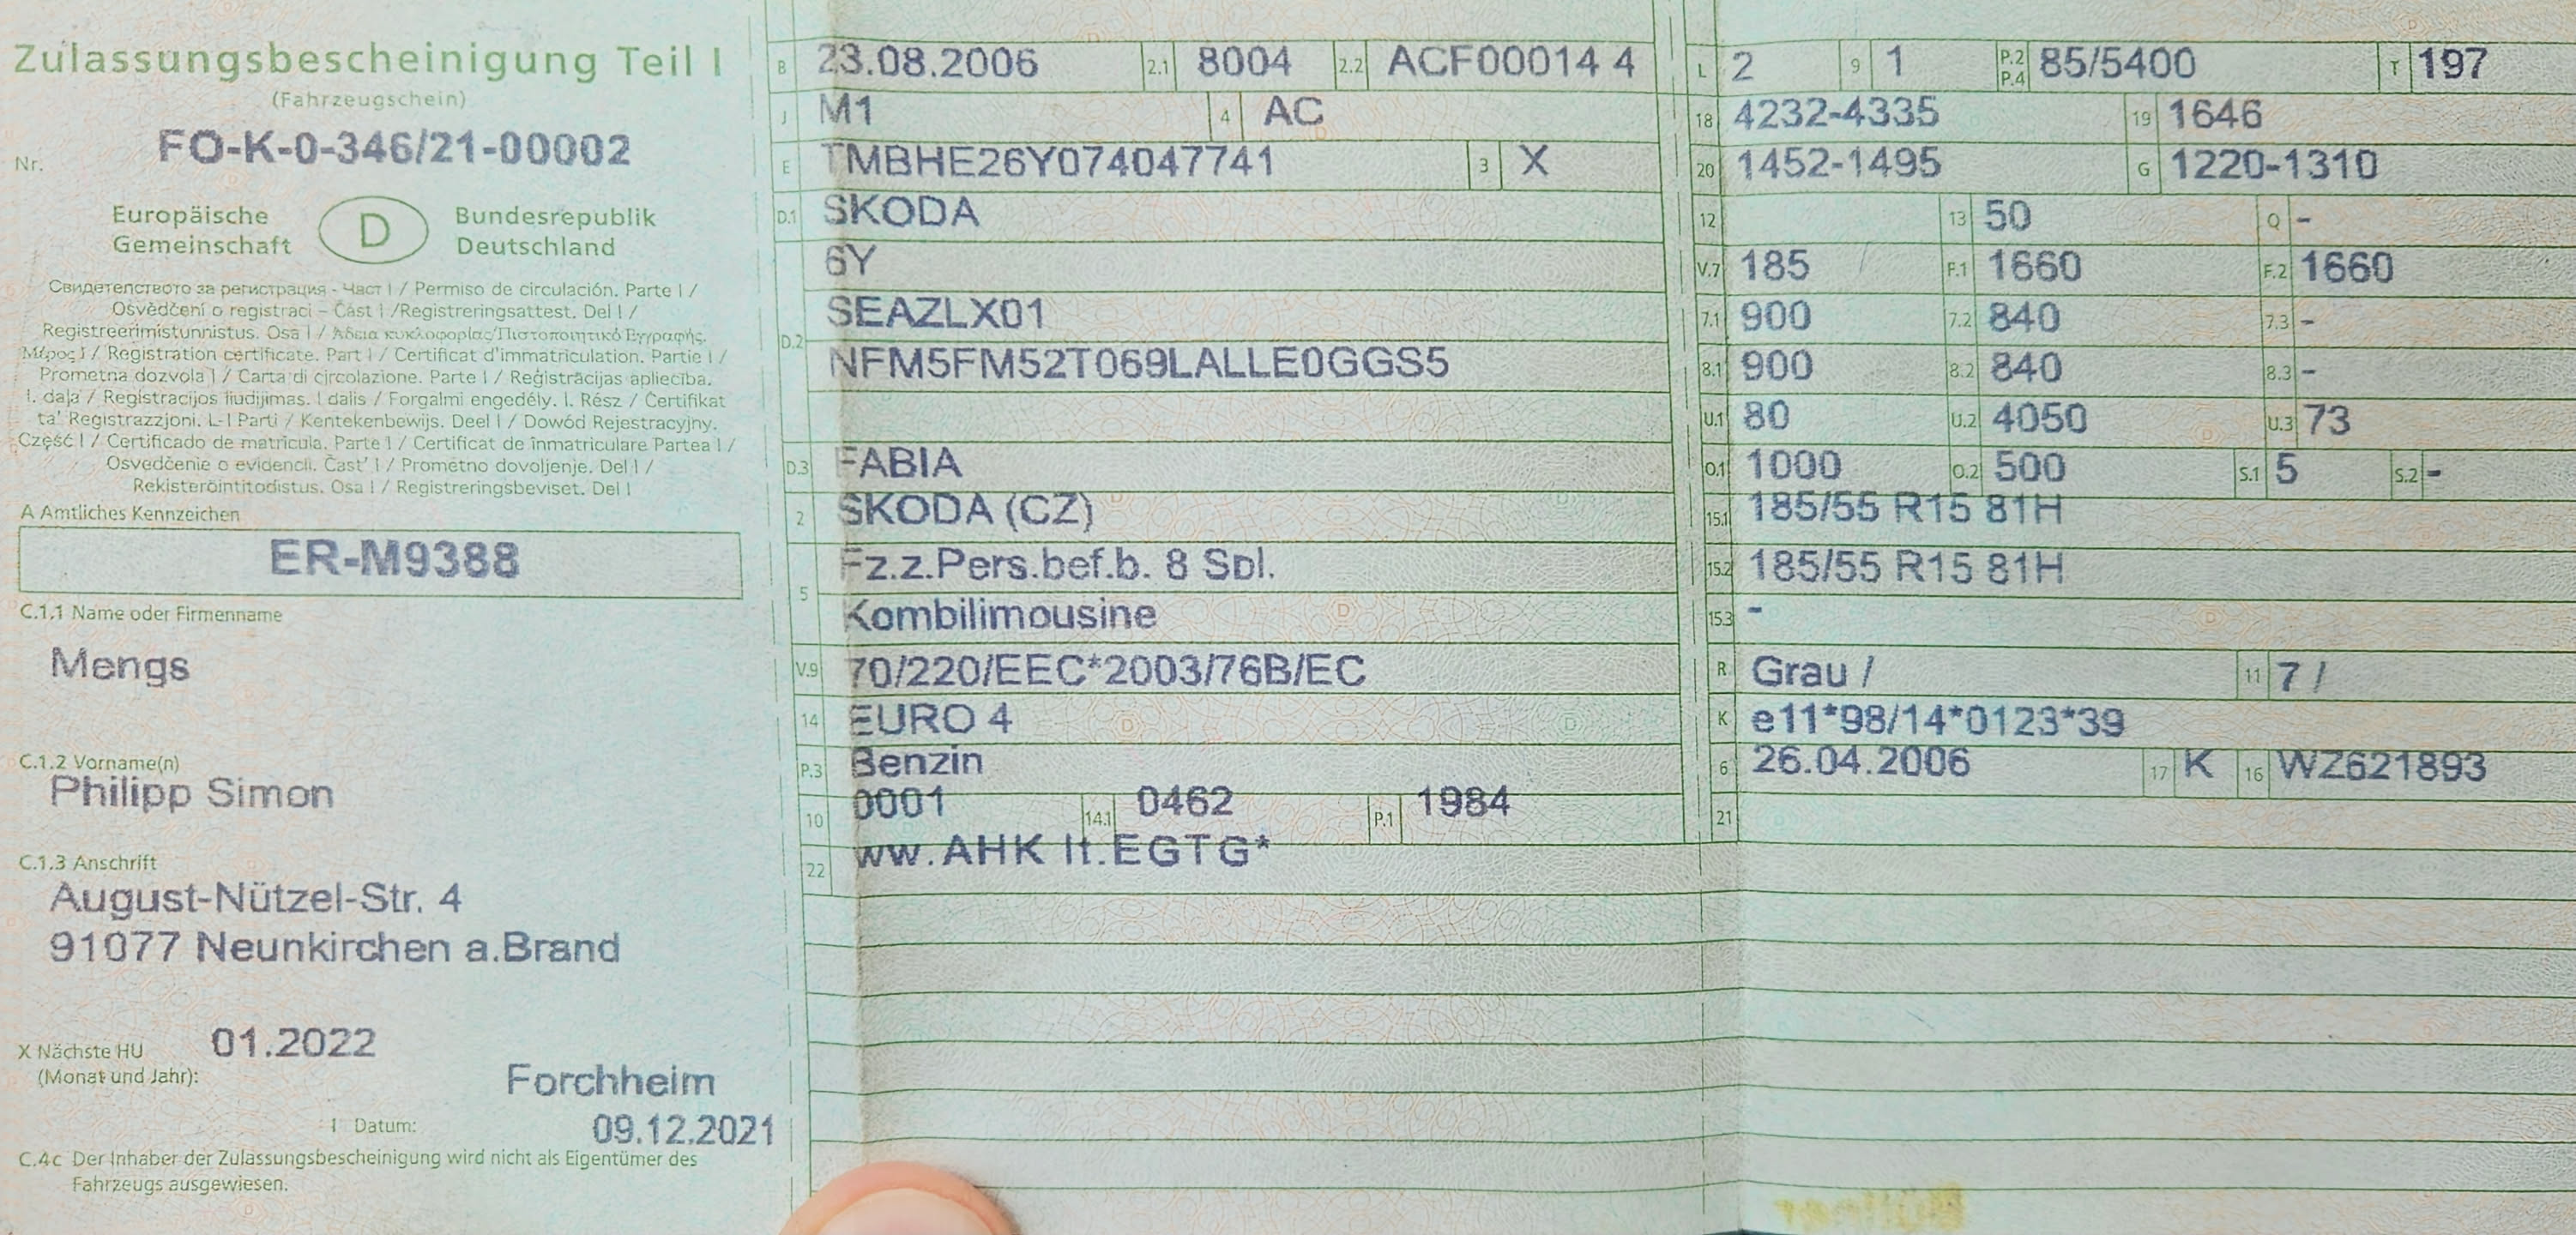 Zulassungsbescheinigung Teil I
(Fahrzeugschein)
Nr. FO-K-0-346/21-00002
Europäische Gemeinschaft D Bundesrepublik Deutschland
Свидетелството за регистрация - Част I / Permiso de circulación. Parte I /
Osvědčení o registraci – Část I /Registreringsattest. Del I /
Registreerimistunnistus. Osa I / Άδεια κυκλοφορίας/Πιστοποιητικό Εγγραφής.
Μέρος I / Registration certificate. Part I / Certificat d'immatriculation. Partie I /
Prometna dozvola I / Carta di circolazione. Parte I / Reģistrācijas apliecība.
I. daļa / Registracijos liudijimas. I dalis / Forgalmi engedély. I. Rész / Ċertifikat
ta' Reġistrazzjoni. L-I Parti / Kentekenbewijs. Deel I / Dowód Rejestracyjny.
Część I / Certificado de matrícula. Parte I / Certificat de înmatriculare Partea I /
Osvedčenie o evidencii. Časť I / Prometno dovoljenje. Del I /
Rekisteröintitodistus. Osa I / Registreringsbeviset. Del I
A Amtliches Kennzeichen
ER-M9388
C.1.1 Name oder Firmenname
Mengs
C.1.2 Vorname(n)
Philipp Simon
C.1.3 Anschrift
August-Nützel-Str. 4
91077 Neunkirchen a.Brand
X Nächste HU 01.2022
(Monat und Jahr):
Forchheim
I Datum: 09.12.2021
C.4c Der Inhaber der Zulassungsbescheinigung wird nicht als Eigentümer des
Fahrzeugs ausgewiesen.
B 23.08.2006 2.1 8004 2.2 ACF00014 4
J M1 4 AC
E TMBHE26Y074047741 3 X
D.1 SKODA
6Y
D.2 SEAZLX01
NFM5FM52T069LALLE0GGS5
D.3 FABIA
2 SKODA (CZ)
5 Fz.z.Pers.bef.b. 8 Spl.
Kombilimousine
V.9 70/220/EEC*2003/76B/EC
14 EURO 4
P.3 Benzin
10 0001 14.1 0462 P.1 1984
22 ww.AHK lt.EGTG*
L 2 9 1 P.2 P.4 85/5400 T 197
18 4232-4335 19 1646
20 1452-1495 G 1220-1310
12 13 50 Q -
V.7 185 F.1 1660 F.2 1660
7.1 900 7.2 840 7.3 -
8.1 900 8.2 840 8.3 -
U.1 80 U.2 4050 U.3 73
O.1 1000 O.2 500 S.1 5 S.2 -
15.1 185/55 R15 81H
15.2 185/55 R15 81H
15.3 -
R Grau / 11 7 /
K e11*98/14*0123*39
6 26.04.2006 17 K 16 WZ621893
21